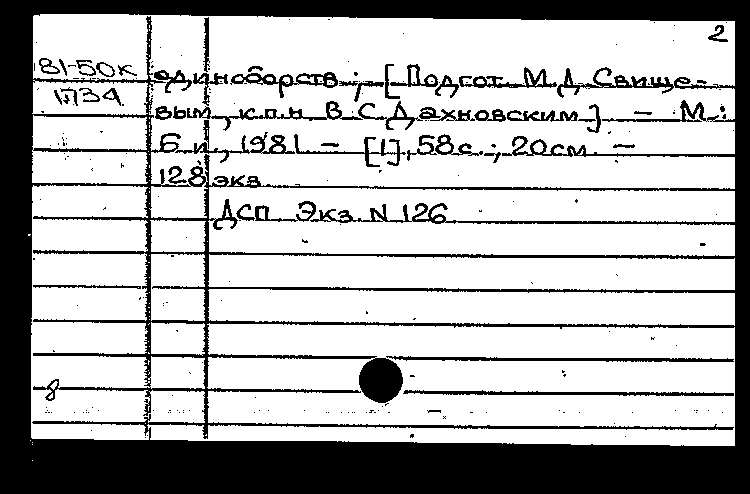 2
81-50к единоборств ; [Подгот. М.Д. Свище-
1734 вым, к.п.н. В.С. Дахновским]. — М.:
Б.и., 1981. — [1], 58с. ; 20см. —
128 экз.
ДСП. Экз. N 126.
8